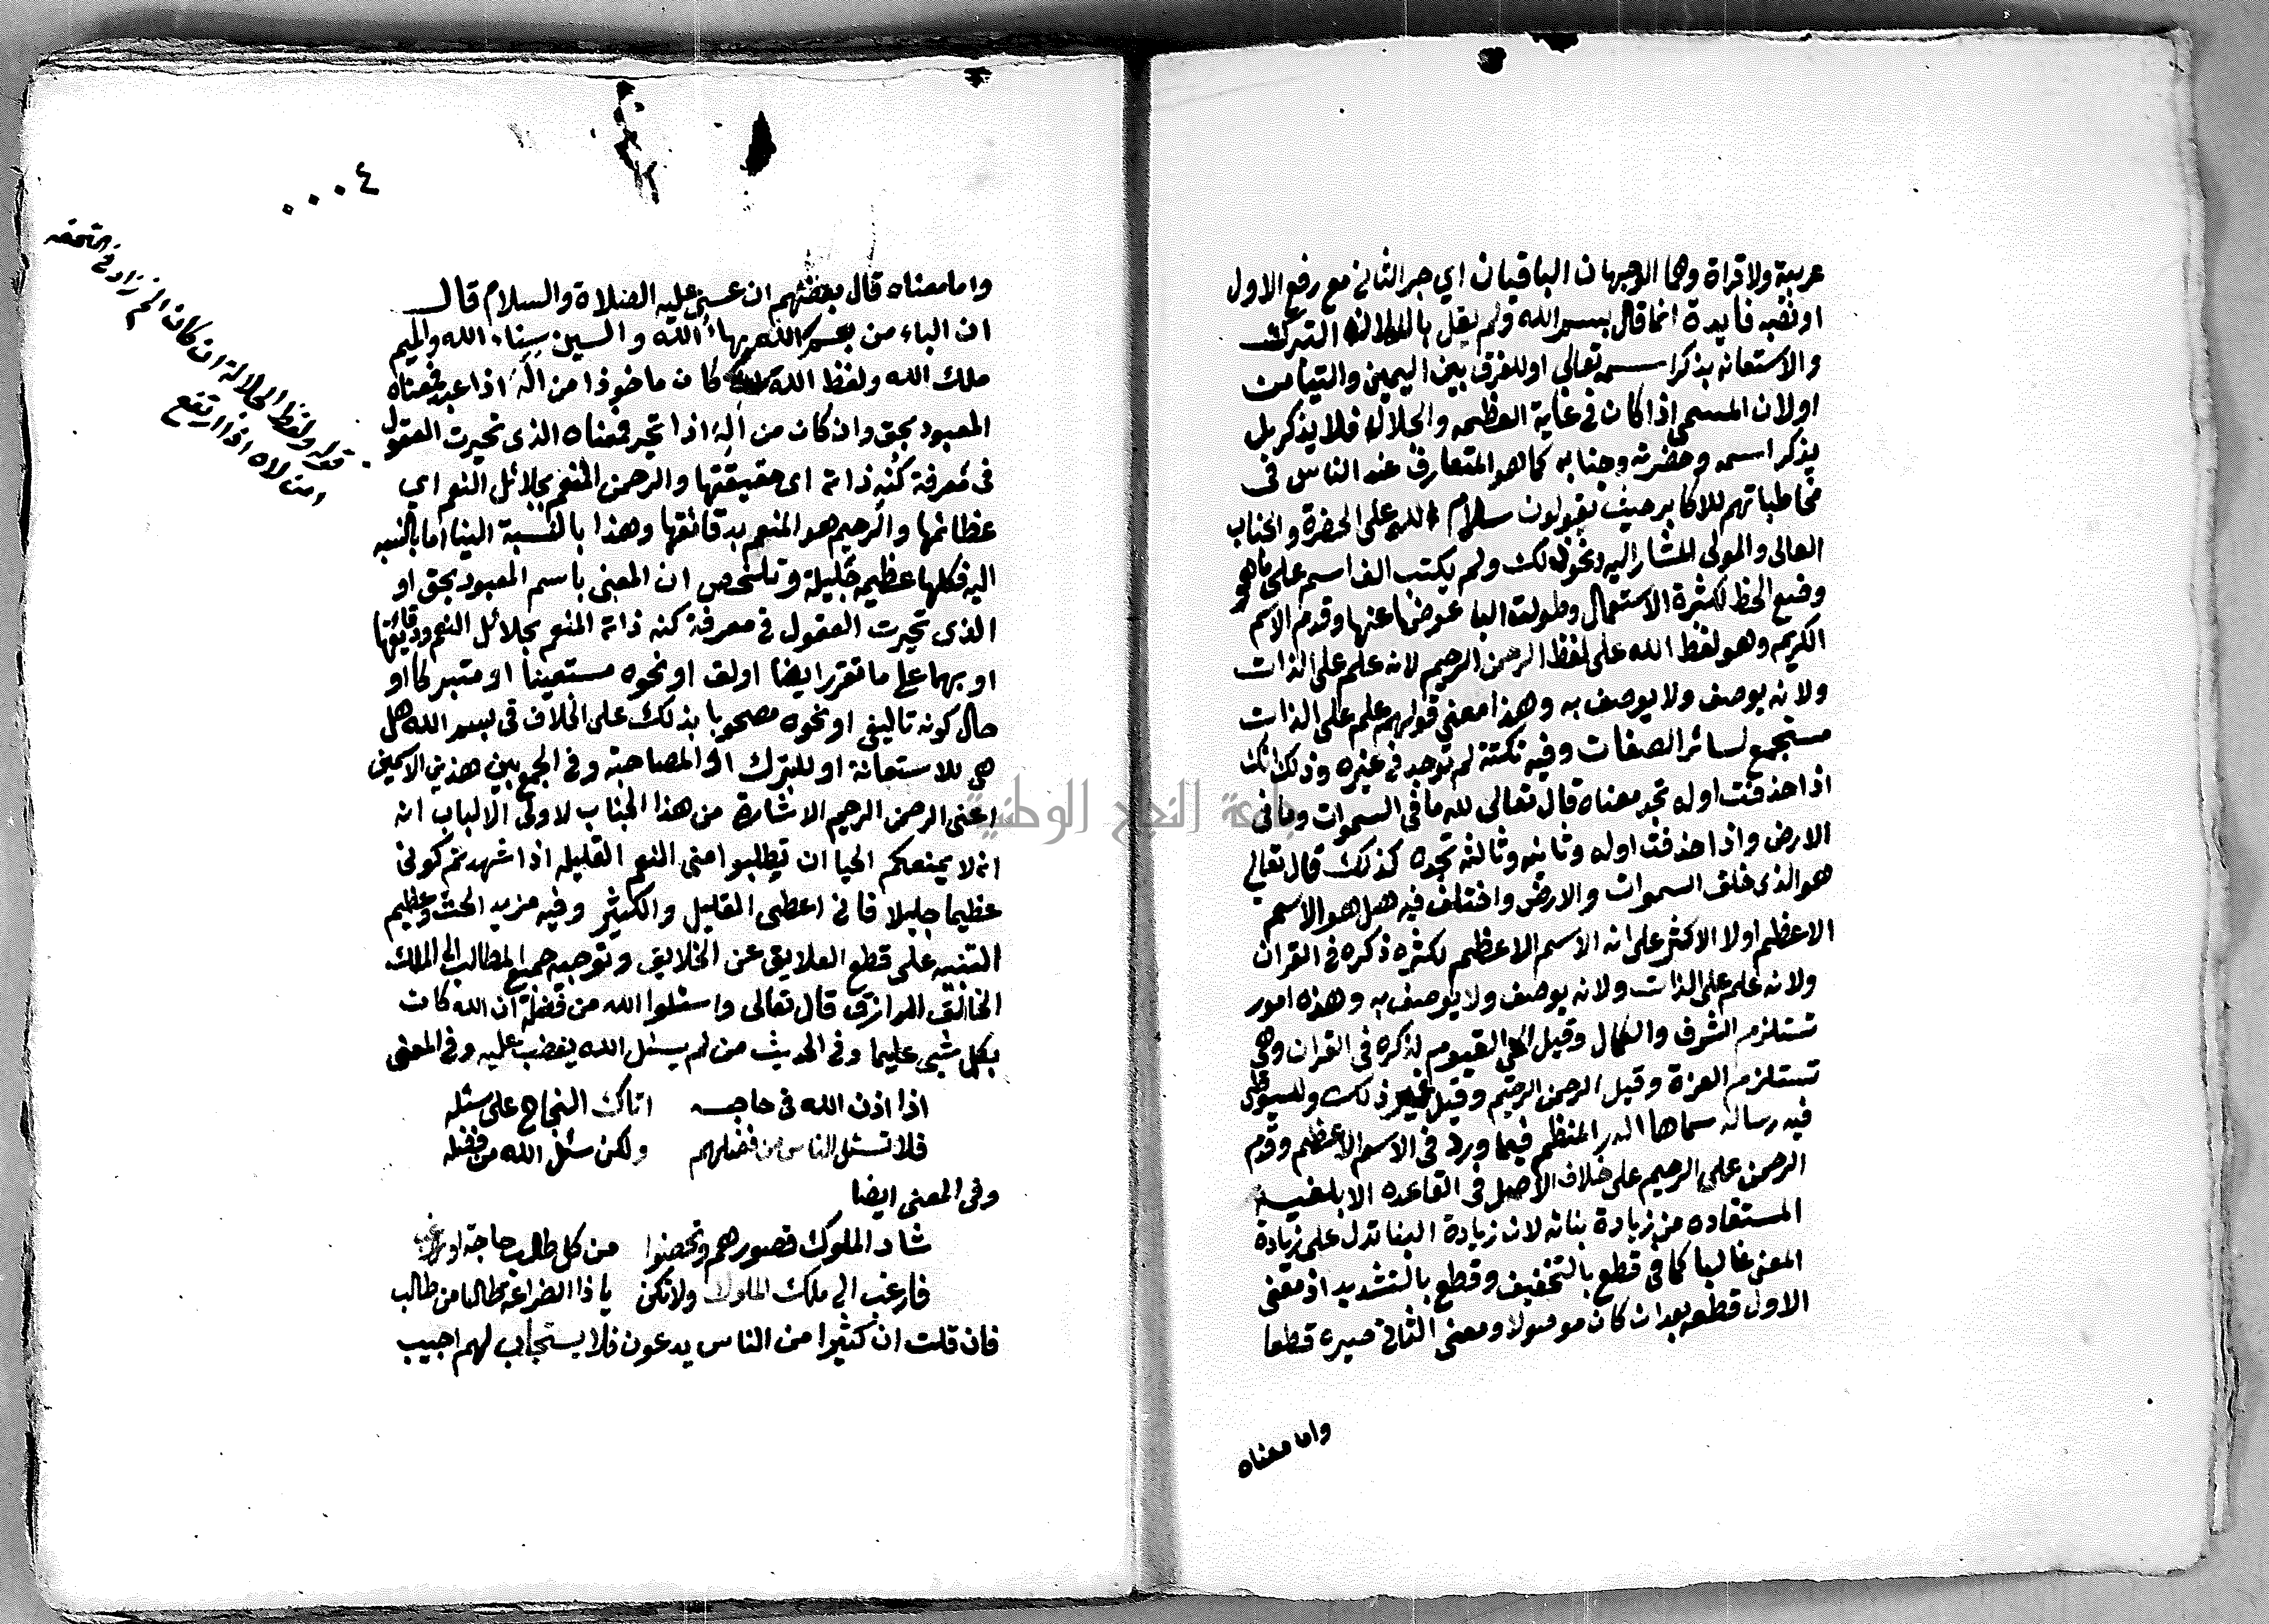 عربية ولا قراة وهما الوجهان الباقيان اي جر الثاني مع رفع الاول
او نصبه فايدة انما قال بسم الله ولم يقل بالله لان التبرك
والاستعانه بذكر اسمه تعالى او للفرق بين اليمين والتيامن
او لان المسمى اذا كان في غاية العظمه والجلال فلا يذكر بل
يذكر اسمه وحضرته وجنابه كما هو المتعارف عند الناس في
مخاطباتهم للاكابر حيث يقولون سلام الله على الحضرة والجناب
العالى والمولى المشار اليه ونحو ذلك ولم يكتب الف اسم على ما هو
وضع الخط لكثرة الاستعمال وطولت البا عوضا عنها وقدم الاسم
الكريم وهو لفظ الله على لفظ الرحمن الرحيم لانه علم على الذات
ولانه يوصف ولا يوصف به وهذا معنى قولهم علم على الذات
مستجمع لسائر الصفات وفيه نكتة لم توجد في غيره وذلك انك
اذا حذفت اوله تجد معناه قال تعالى لله ما في السموات وما في
الارض واذا حذفت اوله وثانيه وثالثه تجده كذلك قال تعالى
هو الذى خلق السموات والارض واختلف فيه هل هو الاسم
الاعظم او لا الاكثر على انه الاسم الاعظم لكثره ذكره في القران
ولانه علم على الذات ولانه يوصف ولا يوصف به وهذه امور
تستلزم الشرف والكمال وقيل الحى القيوم لذكره في القران وهي
تستلزم العزة وقيل الرحمن الرحيم وقيل غير ذلك وللسيوطى
فيه رساله سماها الدر المنظم فيما ورد في الاسم الاعظم وقدم
الرحمن على الرحيم على خلاف الاصل في القاعده الابلغية
المستفاده من زيادة بنائه لان زيادة البنا تدل على زيادة
المعنى غالبا كما في قطع بالتخفيف وقطع بالتشديد اذ معنى
الاول قطعه بعد ان كان موصولا ومعنى الثاني صيره قطعا
واما معناه
٠٠٠٤
واما معناه قال بعضهم ان عسى عليه الصلاة والسلام قال
ان الباء من بسم الله بهاء الله والسين سناء الله والميم
ملك الله ولفظ الله كان ماخوذا من اله اذا عبد فمعناه
المعبود بحق وان كان من اله اذا تحير فمعناه الذى تحيرت العقول
في معرفة كنه ذاته اى حقيقتها والرحمن المنعم بجلائل النعم اي
عظائمها والرحيم هو المنعم بدقائقها وهذا بالنسبة الينا اما بالنسبه
اليه فكلها عظيمه جليلة وتلخص ان المعنى باسم المعبود بحق او
الذى تحيرت العقول في معرفة كنه ذاته المنعم بجلائل النعم ودقائقها
او بهما على ما تقرر ايضا اولف او نحوه مستعينا او متبركا او
حال كونه تاليفى او نحوه مصحوبا بذلك على الخلاف في بسم الله هل
هي للاستعانة او للتبرك او المصاحبة وفي الجمع بين هذين الاسمين
اعنى الرحمن الرحيم الاشارة من هذا الجناب لاولى الالباب انه
انه لا يمنعكم الحيا ان تطلبوا منى النعم القليله اذا شهدتم كونى
عظيما جليلا فاني اعطى القليل والكثير وفيه مزيد الحث وعظيم
التنبيه على قطع العلايق عن الخلايق وتوجيه جميع المطالب الى الملك
الخالق الرازق قال تعالى واسئلوا الله من فضله ان الله كان
بكل شيى عليما وفي الحديث من لم يسئل الله يغضب عليه وفي المعنى
اذا اذن الله في حاجـه اتاك النجاح على سئله
فلا تسئل الناس من فضلهم ولكن سئل الله من فضله
وفي المعنى ايضا
شاد الملوك قصورهم وتحصنوا من كل طالب حاجة او راغب
فارغب الى ملك الملوك ولا تكن يا ذا الضراعة طالبا من طالب
فان قلت ان كثيرا من الناس يدعون فلا يستجاب لهم اجيب
قوله ولفظ الجلالة ان كان الخ زاد في التحفه
او من لاه اذا ارتفع
جامعة النجاح الوطنية